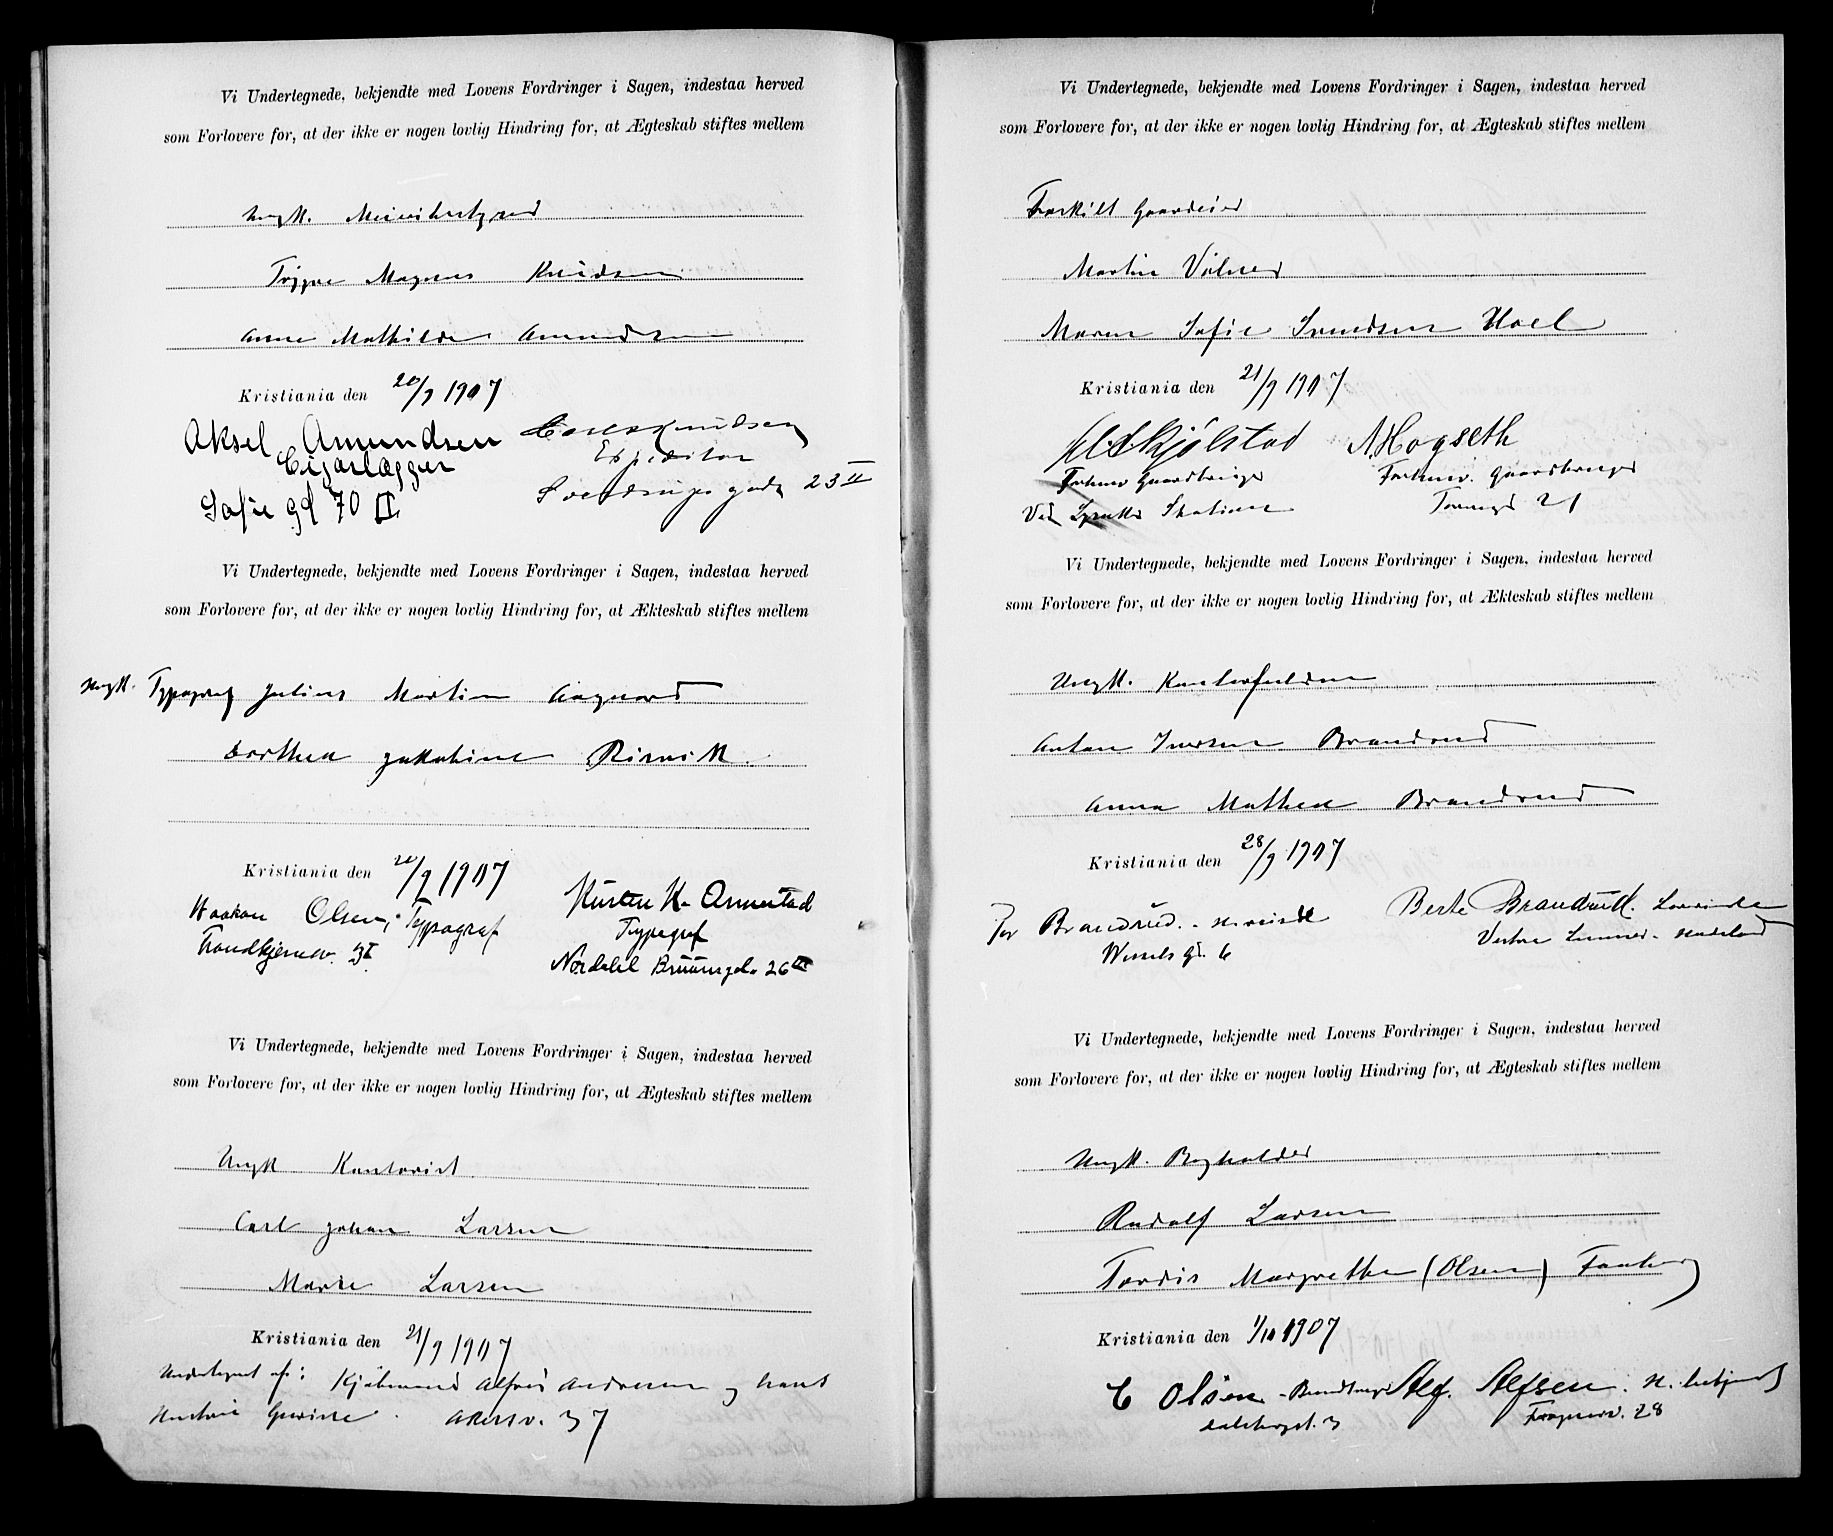 Vi Undertegnede, bekjendte med Lovens Fordringer i Sagen, indestaa herved
som Forlovere for, at der ikke er nogen lovlig Hindring for, at Ægteskab stiftes mellem
Ungk.
Trygve Magnus Knudsen
Anna Mathilde Amundsen
Kristiania den 20/9 1907
Aksel Amundsen
Cigarlægger
Sofie gd 70 II
Knudsen
Expeditør
gade 23 II
Vi Undertegnede, bekjendte med Lovens Fordringer i Sagen, indestaa herved
som Forlovere for, at der ikke er nogen lovlig Hindring for, at Ækteskab stiftes mellem
Ungk. Typograf Julius Martin Aagaard
Dorthea Jakobine Risvik
Kristiania den 20/9 1907
Haakon Olsen, Typograf
Trondhjemsv.
K.
Typograf
Nordahl Bruunsgd. 26 III
Vi Undertegnede, bekjendte med Lovens Fordringer i Sagen, indestaa herved
som Forlovere for, at der ikke er nogen lovlig Hindring for, at Ægteskab stiftes mellem
Ungk Kontorist
Carl Johan Larsen
Marie Larsen
Kristiania den 21/9 1907
Undertegnet af: Kjøbmand Alfred Andresen og hans
Hustru Akersv. 37
Vi Undertegnede, bekjendte med Lovens Fordringer i Sagen, indestaa herved
som Forlovere for, at der ikke er nogen lovlig Hindring for, at Ægteskab stiftes mellem
Fraskilt Gaardeier
Martin
Maren Sofie Svendsen Hoel
Kristiania den 21/9 1907
Kjølstad
Forhenv Gaardbruger
Ved Station
A Hogseth
Forhenv. Gaardbruger
21
Vi Undertegnede, bekjendte med Lovens Fordringer i Sagen, indestaa herved
som Forlovere for, at der ikke er nogen lovlig Hindring for, at Ækteskab stiftes mellem
Ungk. Kontorfuldm
Anton Iversen Brandrud
Anna Mathea Brandrud
Kristiania den 28/9 1907
Per Brandrud.
Wessels Gd. 6
Berte Brandrud.
Vestre Hadeland
Vi Undertegnede, bekjendte med Lovens Fordringer i Sagen, indestaa herved
som Forlovere for, at der ikke er nogen lovlig Hindring for, at Ægteskab stiftes mellem
Ungk. Bogholder
Rudolf Larsen
Tordis Margrethe (Olsen) Faaberg
Kristiania den 1/10 1907
C Olsen
3
Alf. Alfsen.
Frognerv. 28